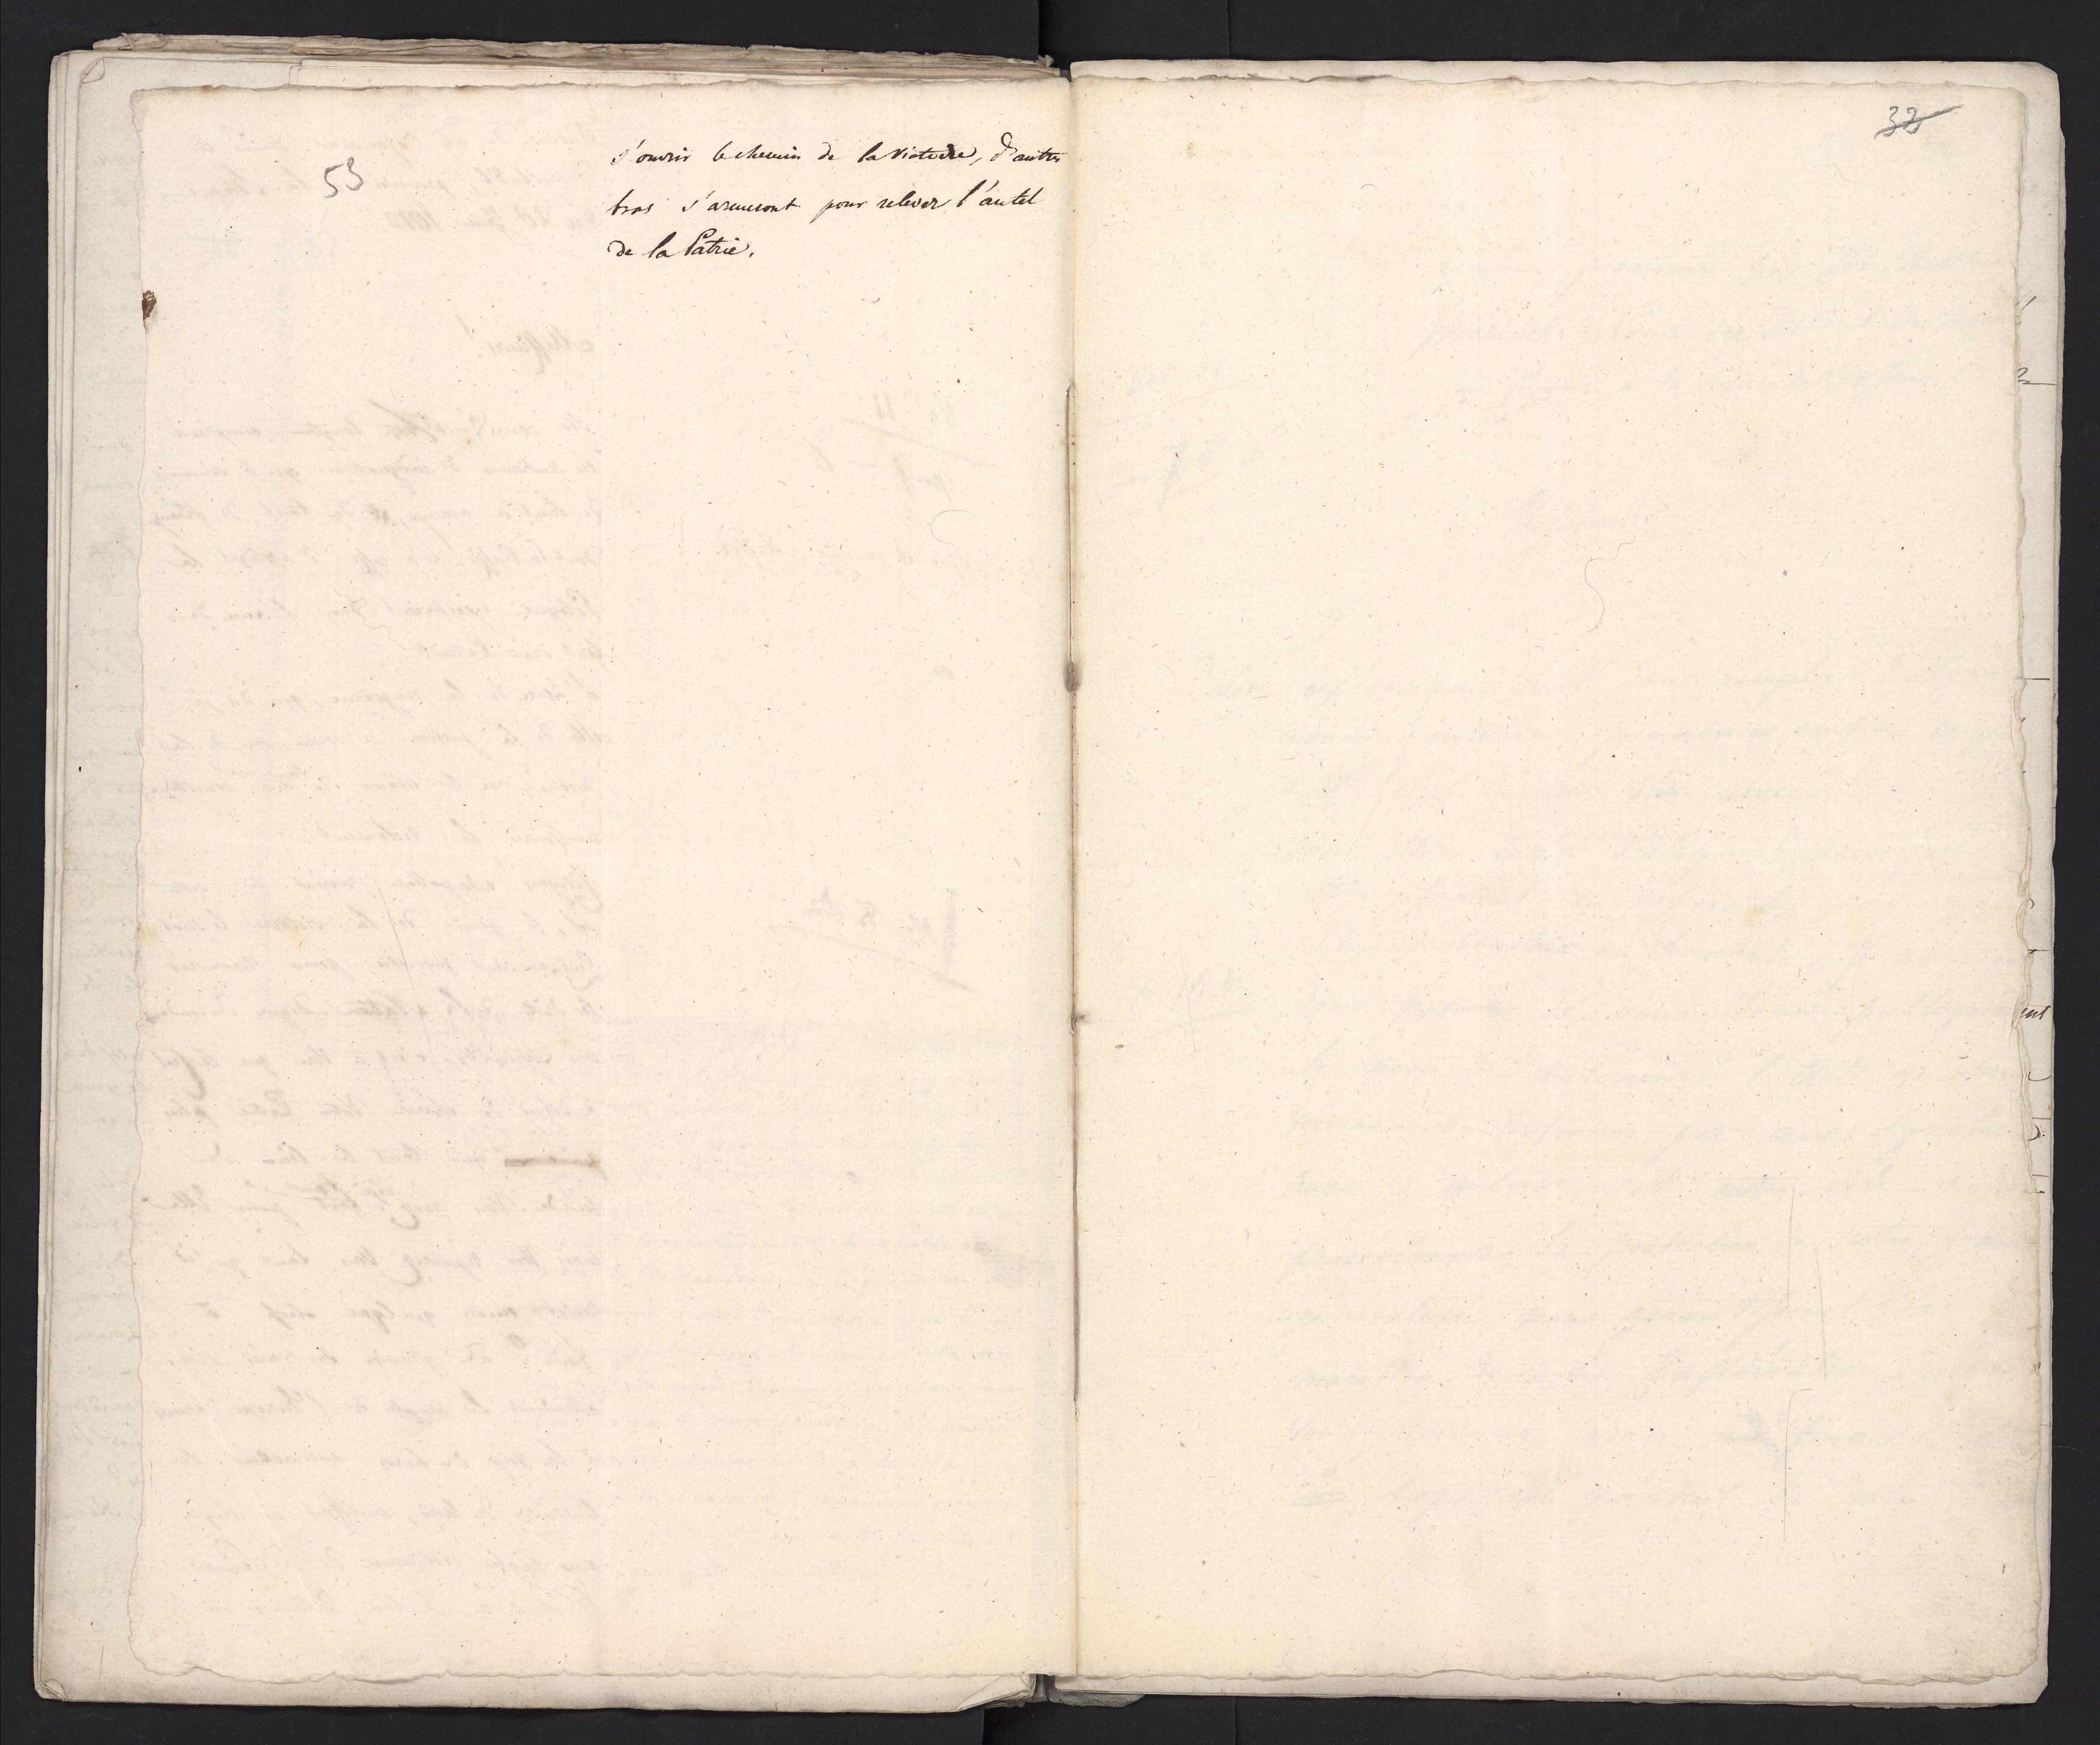 53
s'ouvrir le chemin de la victoire, d'autres
bras s'armeront pour relever l'autel
de la Patrie.
32